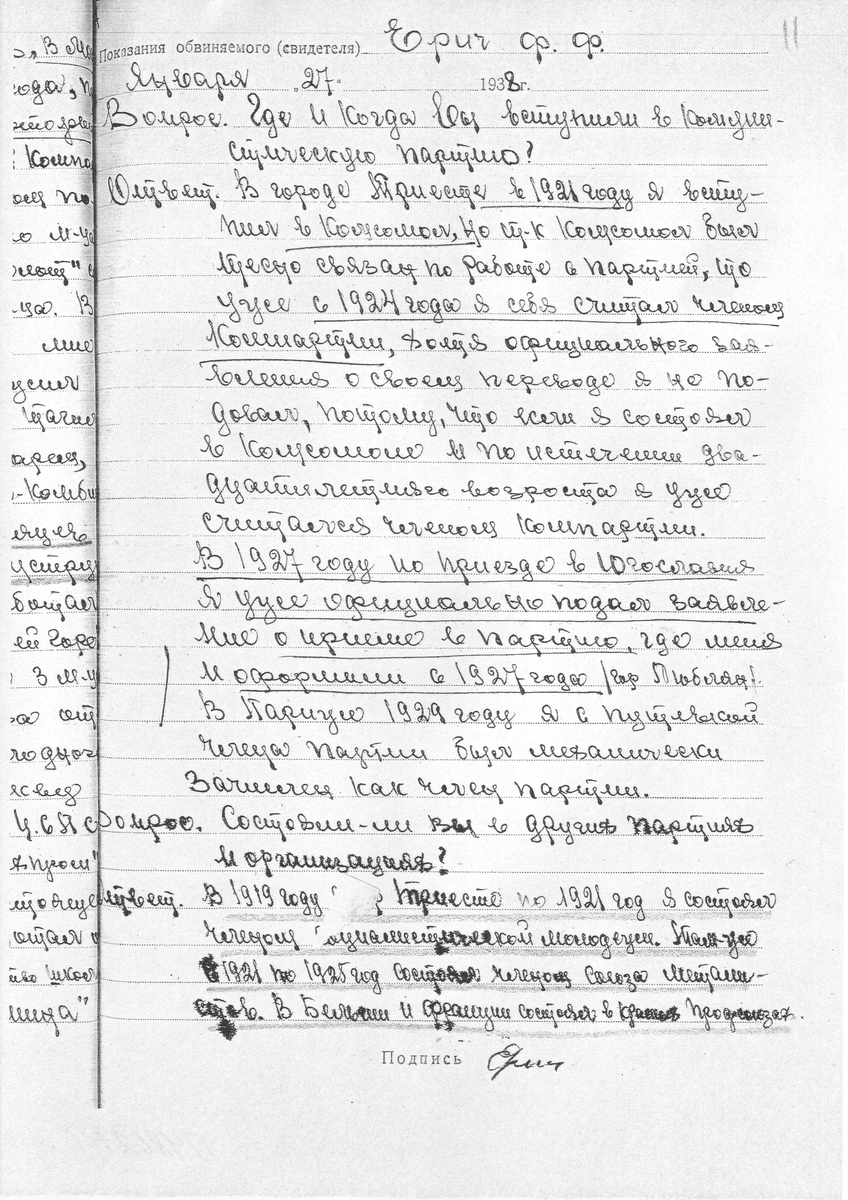 11
Показания обвиняемого (свидетеля) Ерич Ф. Ф.
Января „27“ 1938 г.
Вопрос. Где и когда Вы вступили в Комуни-
стическую партию?
Ответ. В городе Триесте в 1921 году я всту-
пил в Комсомол, но т-к Комсомол был
тесно связан по работе с партией, то
уже с 1924 года я себя считал членом
Компартии, хотя официального зая-
вления о своем переводе я не по-
довал, потому, что если я состоял
в Комсомоле и по истечении два-
дцатилетняго возроста я уже
считался членом Компартии.
В 1927 году по приезде в Югославия
я уже официально подал заявле-
ние о приеме в партию, где меня
и оформили с 1927 года /гор Любляна/.
В Париже 1929 году я с путевкой
члена партии был механически
Зачислен как член партии.
Вопрос. Состояли-ли вы в других партиях
и организациях?
Ответ. В 1919 году Триесте по 1921 год я состоял
членом социалистической молодежи. Там-же
с 1921 по 1925 год состоял членом союза Метали-
стов. В Бельгии и Франции состоял в красных Профсоюзах.
Подпись Ерич